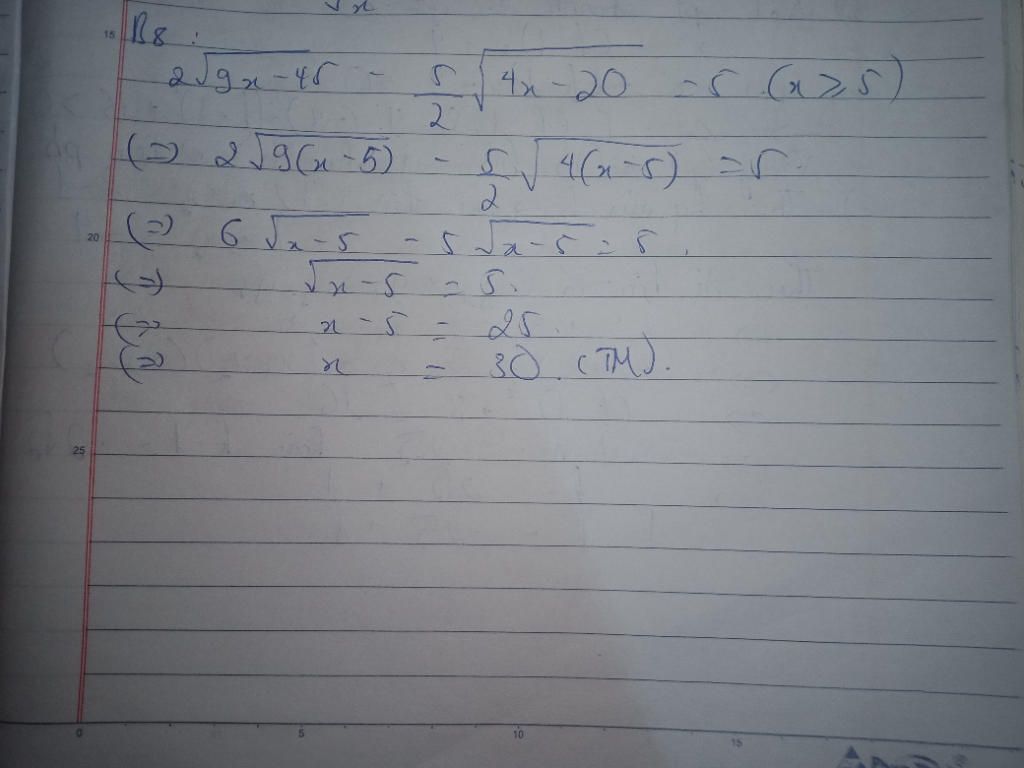 √x
15
B8 :
2√9x-45 - 5/2 √4x-20 = 5 (x ≥ 5)
(=) 2√9(x-5) - 5/2 √4(x-5) = 5.
20
(=) 6√x-5 - 5√x-5 = 5.
(=) √x-5 = 5.
(=) x-5 = 25.
(=) x = 30. (TM).
25
0 5 10 15